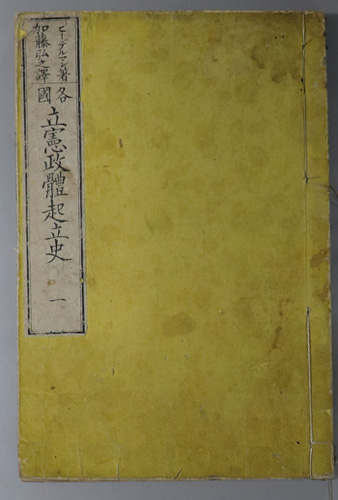 ビーデルマン著
加藤弘之譯
各國立憲政體起立史 一